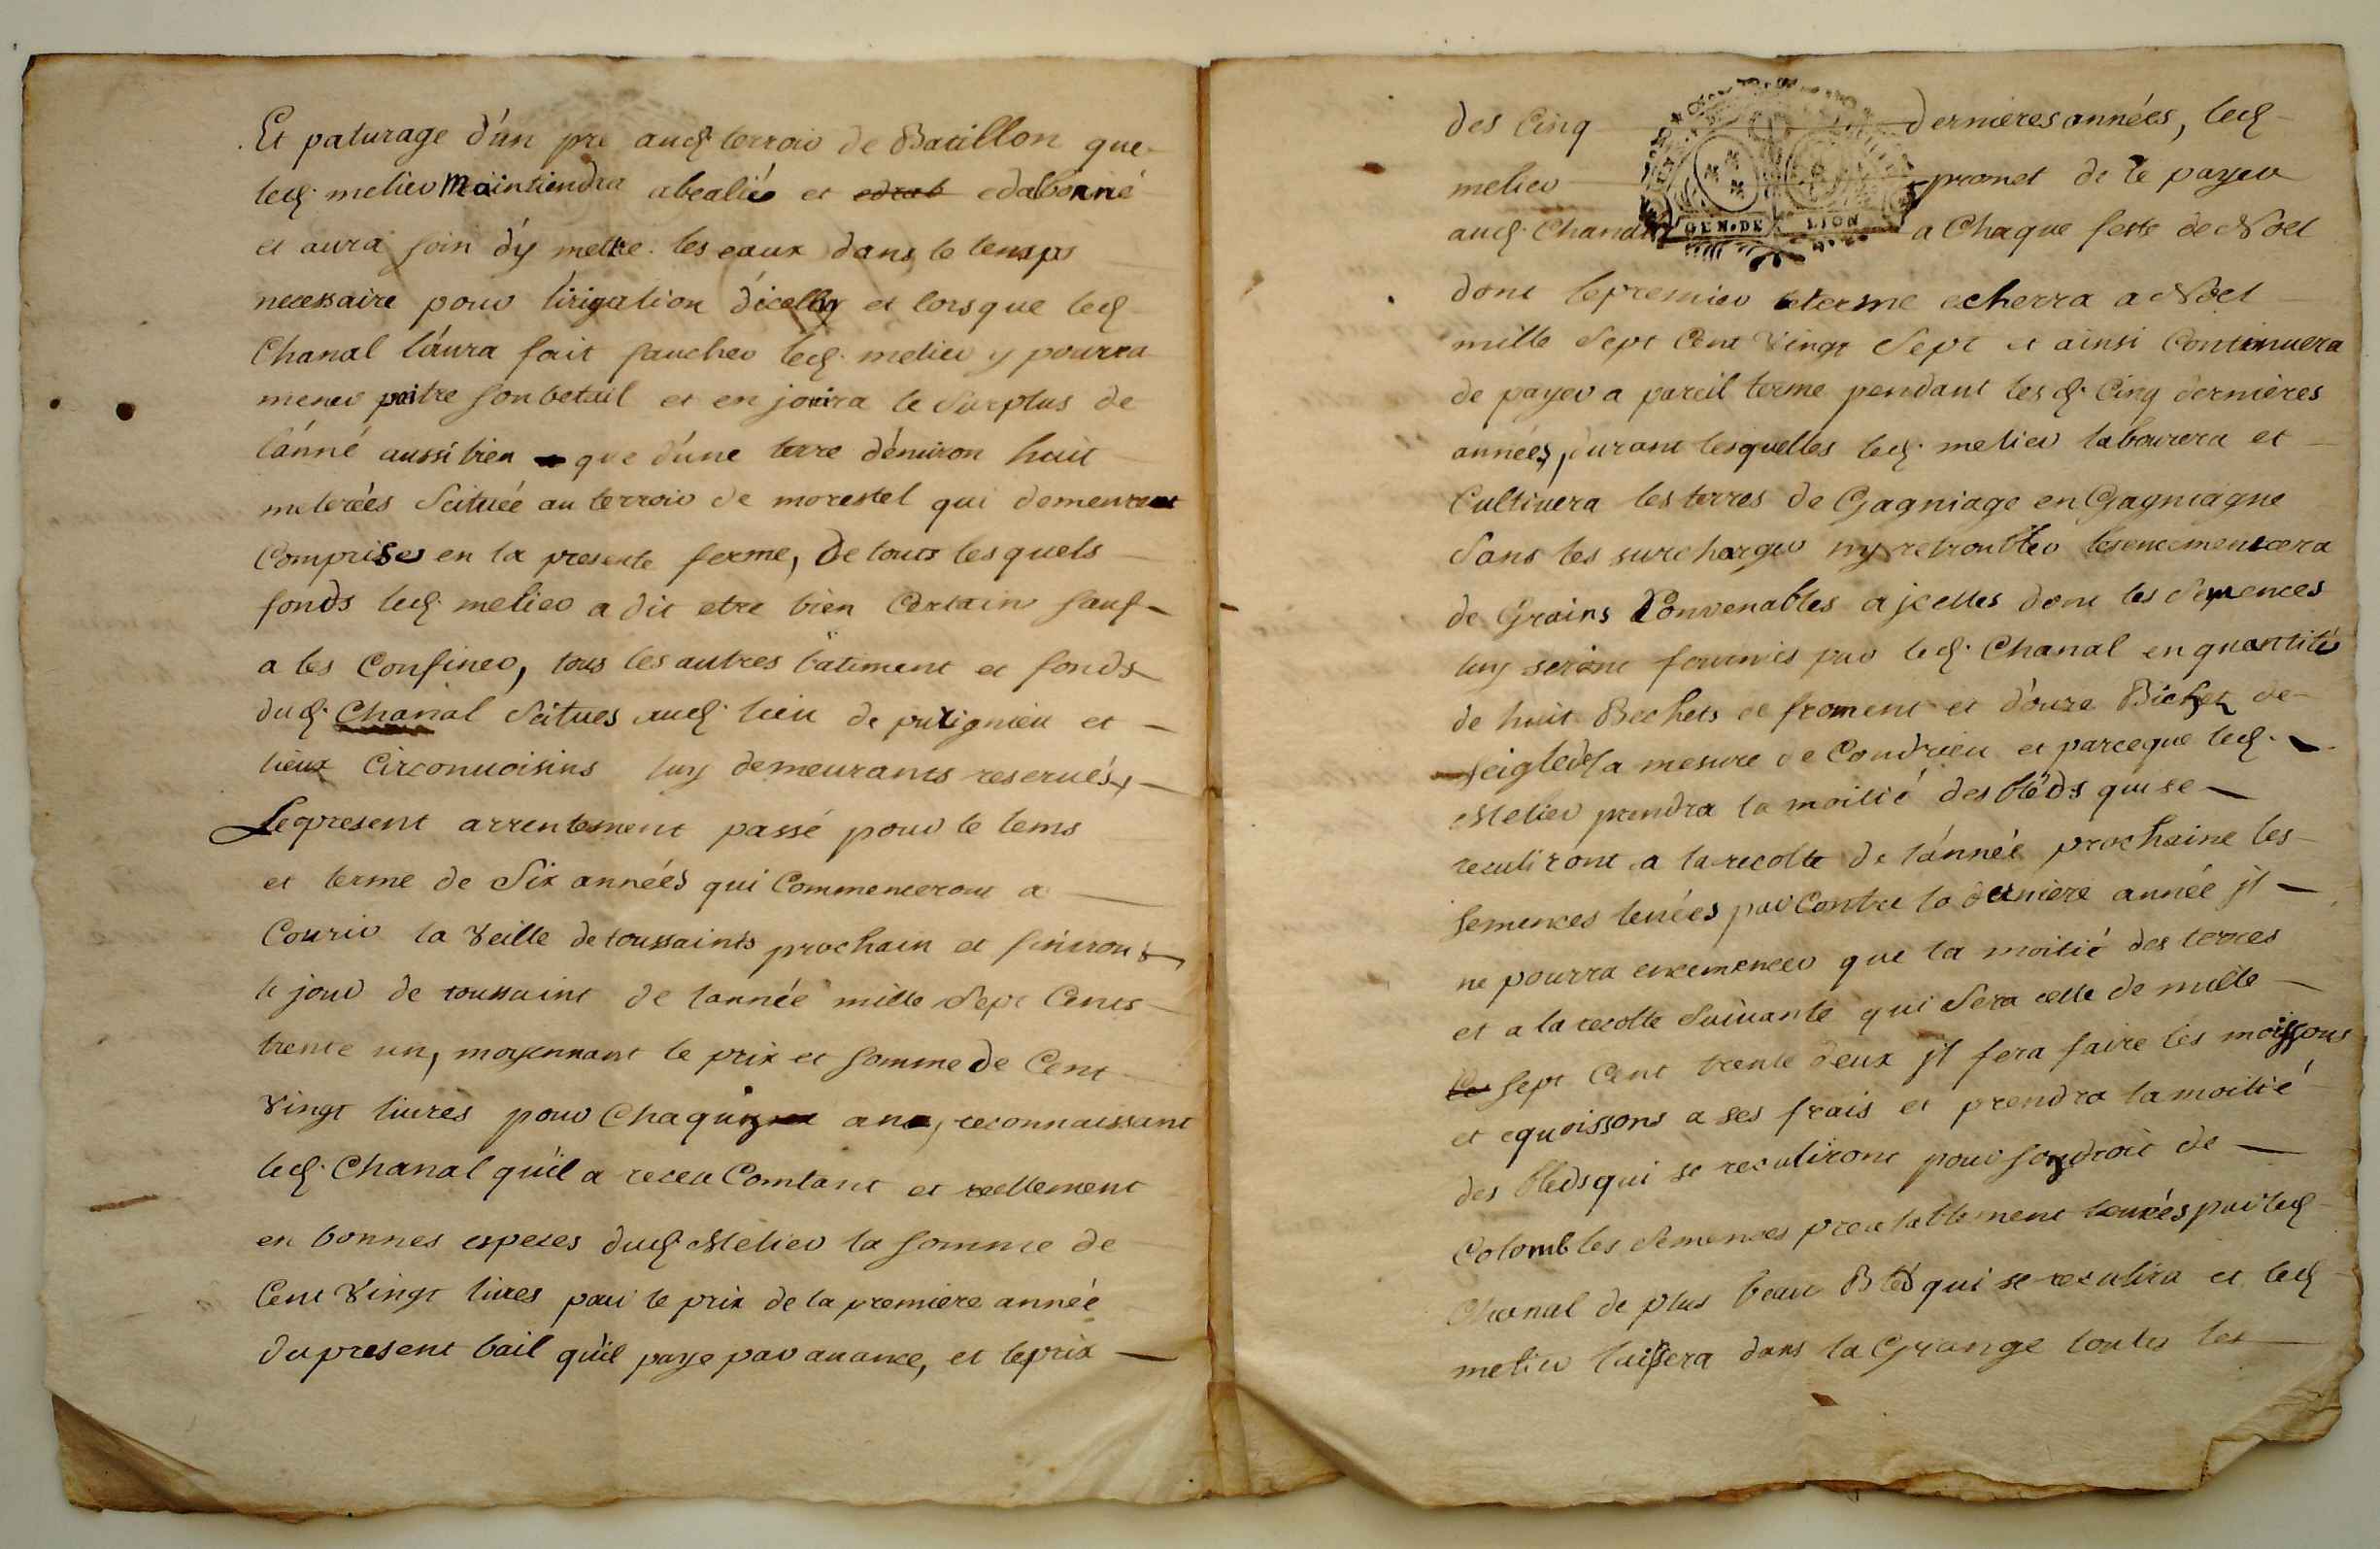 Et paturage d'un pré aud. terroir de Barillon que
led. melier maintiendra abealié et edrab edabonné
et aura soin d'y mettre les eaux dans le temps
necessaire pour l'irigation d'icelluy et lorsque led
Chanal l'aura fait faucher led. melier y pourra
mener paitre son betail et en jouira le surplus de
l'anné aussi bien que d'une terre d'enuiron huit
meterées scituée au terroir de morestel qui demeurent
Comprises en la presente ferme, de touts lesquels
fonds led. melier a dit etre bien Certain sauf
a les Confiner, tous les autres bâtiment et fonds
dud. Chanal scitues aud. lieu de
lieux Circonuoisins luy demeurants reserués,
Le present arrentement passé pour le tems
et terme de Six années qui Commenceront a
Courir la veille de toussaints prochain et finiront
le jour de toussaint de l'année mille sept Cents
trente un, moyennant le prix et somme de Cent
vingt liures pour Chaqu'un an, reconnaissant
led. Chanal qu'il a receu Comtant et reellement
en bonnes especes dud. Melier la somme de
Cent vingt liures pour le prix de la premiere année
du present bail qu'il paye par auance, et le prix
des Cinq dernieres années, led
melier promet de le payer
aud. Chanal a Chaque feste de Noel
GEN. DE LION
dont le premier terme echerra a Noel
mille Sept Cent vingt Sept et ainsi Continuera
de payer a pareil terme pendant lesd. Cinq dernières
années, durant lesquelles led. melier labourera et
Cultiuera les terres de Gagniage en Gagniagne
sans les surcharger ny retroubler les encemencera
de Grains Convenables a jcelles dont les semences
luy seront fournies par led. Chanal en quantité
de huit Bechets de froment et douze Bichet de
seigle de la mesure de Condrieu et parceque led.
Melier prendra la moitié des bléds qui se
reculiront a la recolte de l'année prochaine les
semences leuées par Contre la derniere année jl
ne pourra encemencer que la moitié des terres
et a la recolte suiuante qui sera celle de mille
Ce sept Cent trente deux jl fera faire les moissons
et equoissons a ses frais et prendra la moitié
des bleds qui se reculiront pour son droit de
Colomb les semences prealablement leuées par led
Chanal de plus beau Bléd qui se reculira et led
melier laissera dans la Grange toutes les